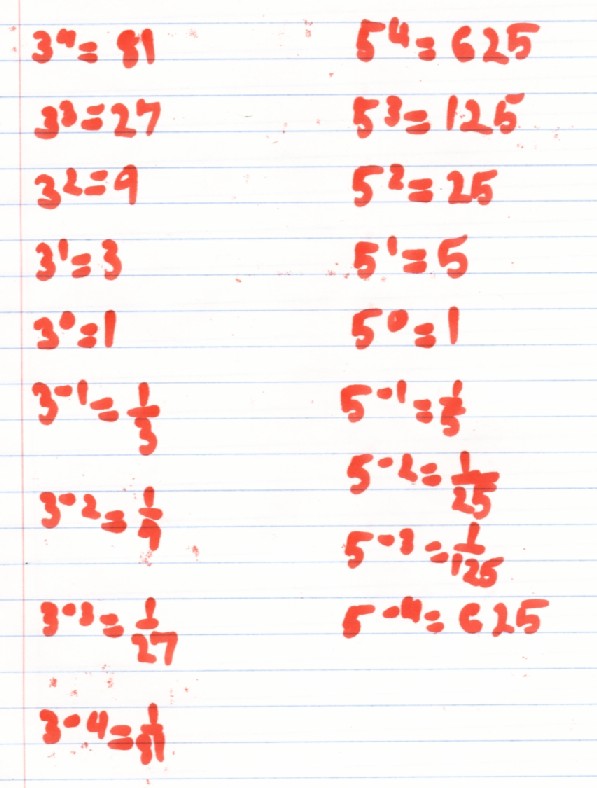 3⁴ = 81
3³ = 27
3² = 9
3¹ = 3
3⁰ = 1
3⁻¹ = 1/3
3⁻² = 1/9
3⁻³ = 1/27
3⁻⁴ = 1/81
5⁴ = 625
5³ = 125
5² = 25
5¹ = 5
5⁰ = 1
5⁻¹ = 1/5
5⁻² = 1/25
5⁻³ = 1/125
5⁻⁴ = 625